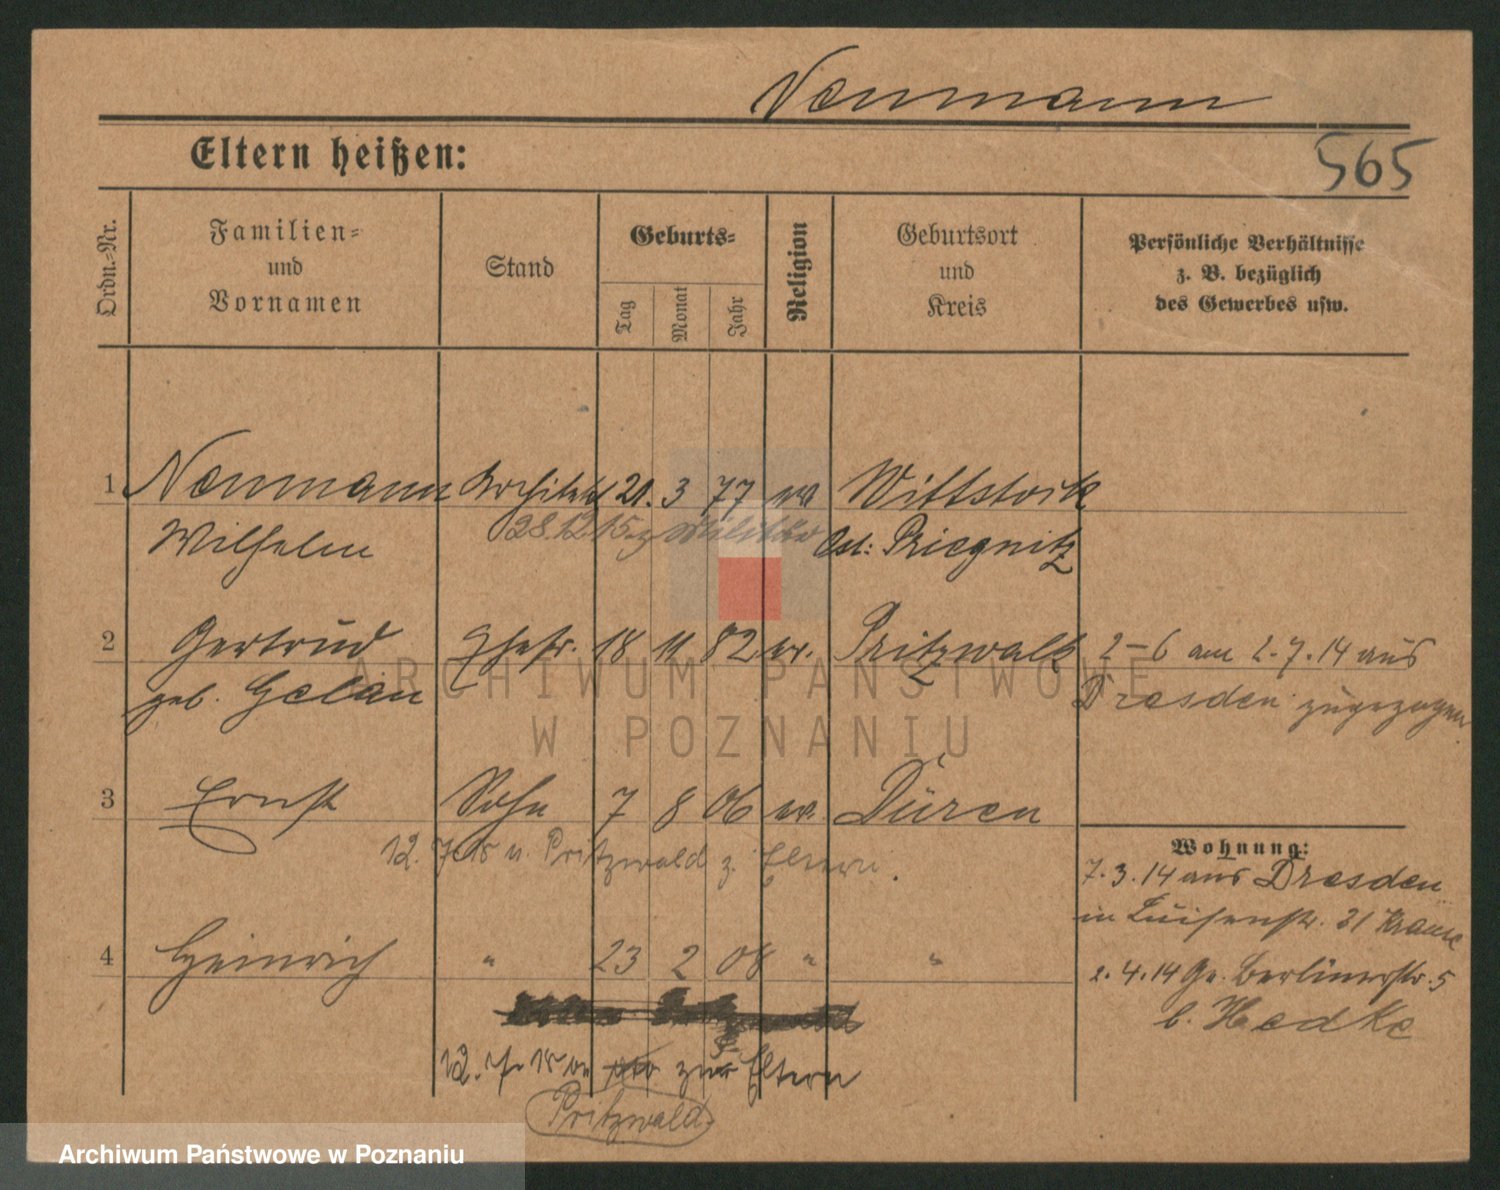 Neumann
Eltern heißen:
565
Ordn.-Nr.
Familien-
und
Vornamen
Stand
Geburts-
Tag
Monat
Jahr
Religion
Geburtsort
und
Kreis
Persönliche Verhältnisse
z. B. bezüglich
des Gewerbes usw.
1 Neumann Architekt 21. 3 77 ev Wittstock
Wilhelm 28.12.15 z Militär Ost: Priegnitz
2 Gertrud Ehefr. 18 11 82 ev. Pritzwalk 2–6 am 2.7.14 aus
geb. Dresden zugezogen
3 Ernst Sohn 7 8 06 ev. Düren
12. 7. 15 v. Pritzwald z. Eltern.
Wohnung:
7.3.14 aus Dresden
in Luisenstr. 31 Krause
4 Heinrich " 23 2 08 " "
2.4.14 Gr. Berlinerstr. 5
b. Hedke
12. 7. 15 von zur Eltern
Pritzwald
ARCHIWUM PAŃSTWOWE
W POZNANIU
Archiwum Państwowe w Poznaniu